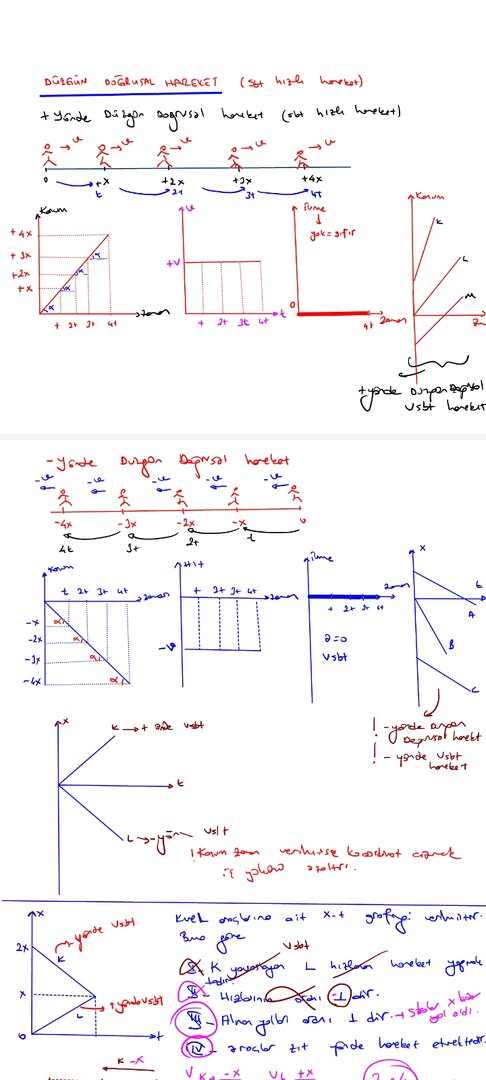 DÜZGÜN DOĞRUSAL HAREKET (Sbt hızlı hareket)
+ Yönde Düzgün Doğrusal hareket (sbt hızlı hareket)
→v →v →v →v →v
0 +x +2x +3x +4x
t 2t 3t 4t
Konum
+4x
+3x
+2x
+x
α α α α
t 2t 3t 4t zaman
v
+v
t 2t 3t 4t t
ivme
yok = sıfır
0
4t zaman
Konum
K
L
M
+ yönde Düzgün Doğrusal
Vsbt hareket
- Yönde Düzgün Doğrusal hareket
-v -v -v -v -v
-4x -3x -2x -x 0
4t 3t 2t t
Konum
t 2t 3t 4t zaman
-x
-2x
-3x
-4x
α α α α
t 2t 3t 4t zaman
-v
ivme
zaman
t 2t 3t 4t
a=0
Vsbt
x
t
A
B
C
! - yönde Düzgün
Doğrusal hareket
! - yönde Vsbt
hareket
x
K → + yönde Vsbt
t
L → - yön
! Konum zaman verilmişse koordinat çizmek
iş yükünü azaltır.
x
2x
- yönde Vsbt
K
x
+ yönde Vsbt
L
0
t
K ve L araçlarına ait x-t grafiği verilmiştir.
Buna göre
Vsbt
I- K yavaşlayan L hızlanan hareket yapmaktadır.
II- Hızlarının oranı -1 dir.
III- Alınan yolları oranı 1 dir. → Skaler x kadar yol aldı.
IV- araçlar zıt yönde hareket etmektedir.
K -x
-x
VL +x